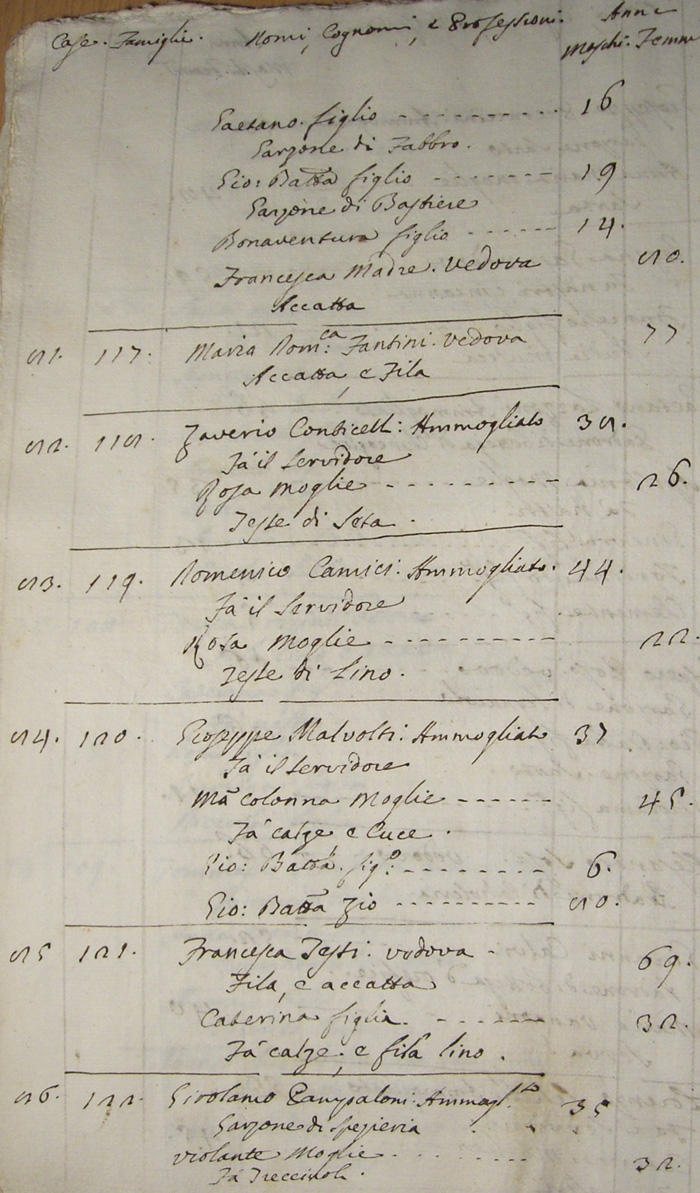 Case. Famiglie. Nomi, Cognomi, e Professioni. Anni
Maschi. Femm
Gaetano figlio - - - - - - - - - - 16
Garzone di Fabbro.
Gio: Batta figlio - - - - - - - 19
Garzone di Bastiere
Bonaventura figlio - - - - - - 14.
Francesca Madre. vedova 80.
Accatta
81. 117. Maria Dom:ca Fantini. vedova 77
Accatta, e Fila
82. 118. Zaverio Conticelli: Ammogliato 38.
Fà il servidore
Rosa Moglie - - - - - - - - - - 26.
Tesse di Seta.
83. 119. Domenico Camici: Ammogliato. 44.
Fà il Servidore
Rosa Moglie - - - - - - - - - 22.
Tesse di Lino.
84. 120. Giuseppe Malvolti: Ammogliato 37
Fà il servidore
Mã Colonna Moglie - - - - - - 45.
Fà calze e Cuce.
Gio: Batta. fig:o - - - - - - - - 6.
Gio: Batta zio - - - - - - - - - 80.
85 121. Francesca Testi: vedova - 69.
Fila, e accatta
Caterina figlia. - - - - - - - 32.
Fà calze, e fila lino.
86. 122. Girolamo Pampaloni: Ammogl.to 35
Garzone di spezieria
violante Moglie - - - - - - - 32.
Fà Treccivoli.